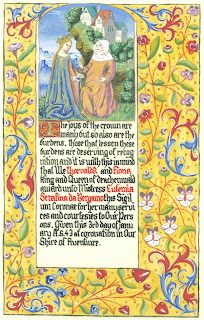 The joys of the crown are
many but so also are the
burdens. Those that lessen these
burdens are deserving of recog
nition and it is with this in mind
that We Thorvaldr and Fiona
King and Queen of Drachenwald
award unto Mistress Eufemia
Serafina da Bergamo this Sigil
um Coronae for her many serv
ices and courtesies to Our Pers
ons. Given this 3rd day of January
A.S. 43 at coronation in Our
Shire of Aventiure.